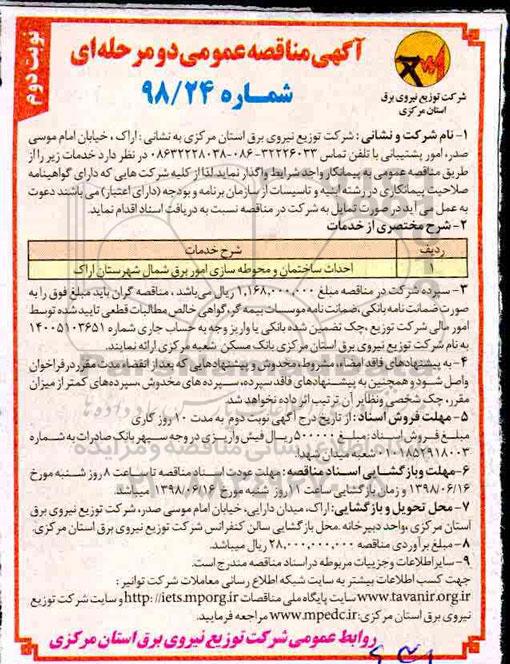 نوبت دوم
آگهی مناقصه عمومی دو مرحله ای
شماره ۹۸/۲۴
شرکت توزیع نیروی برق
استان مرکزی
۱- نام شرکت و نشانی : شرکت توزیع نیروی برق استان مرکزی به نشانی : اراک ، خیابان امام موسی
صدر، امور پشتیبانی با تلفن تماس ۳۲۲۲۶۰۳۳-۰۸۶ ۰۸۶۳۲۲۲۸۰۳۸ در نظر دارد خدمات زیر را از
طریق مناقصه عمومی به پیمانکار واجد شرایط واگذار نماید لذا از کلیه شرکت هایی که دارای گواهینامه
صلاحیت پیمانکاری در رشته ابنیه و تاسیسات از سازمان برنامه و بودجه (دارای اعتبار) می باشند دعوت
به عمل می آید در صورت تمایل به شرکت در مناقصه نسبت به دریافت اسناد اقدام نماید.
۲- شرح مختصری از خدمات
ردیف شرح خدمات
۱ احداث ساختمان و محوطه سازی امور برق شمال شهرستان اراک
۳- سپرده شرکت در مناقصه مبلغ ۱,۱۶۸,۰۰۰,۰۰۰ ریال می باشد ، مناقصه گران باید مبلغ فوق را به
صورت ضمانت نامه بانکی ،ضمانت نامه موسسات بیمه گر، گواهی خالص مطالبات قطعی تایید شده توسط
امور مالی شرکت توزیع ،چک تضمین شده بانکی یا واریز وجه به حساب جاری شماره ۱۴۰۰۵۱۰۳۶۵۱
به نام شرکت توزیع نیروی برق استان مرکزی بانک مسکن شعبه مرکزی ارائه نمایند.
۴- به پیشنهادهای فاقد امضاء ، مشروط، مخدوش و پیشنهادهایی که بعد از انقضاء مدت مقرر در فراخوان
واصل شود و همچنین به پیشنهادهای فاقد سپرده، سپرده های مخدوش ،سپرده های کمتر از میزان
مقرر، چک شخصی ونظایر آن ترتیب اثر داده نخواهد شد.
۵- مهلت فروش اسناد : از تاریخ درج آگهی نوبت دوم به مدت ۱۰ روز کاری
مبلغ فروش اسناد : مبلغ ۵۰۰۰۰۰ ریال فیش واریزی در وجه سپهر بانک صادرات به شماره
۰۱۰۱۸۵۲۹۱۸۰۰۳ شعبه میدان شهدا.
۶- مهلت وبازگشایی اسناد مناقصه : مهلت عودت اسناد مناقصه تا ساعت ۸ روز شنبه مورخ
۱۳۹۸/۰۶/۱۶ و زمان بازگشایی ساعت ۱۱ روز شنبه مورخ ۱۳۹۸/۰۶/۱۶ میباشد.
۷- محل تحویل و بازگشایی : اراک، میدان دارایی، خیابان امام موسی صدر، شرکت توزیع نیروی برق
استان مرکزی ،واحد دبیرخانه .محل بازگشایی سالن کنفرانس شرکت توزیع نیروی برق استان مرکزی.
۸- مبلغ برآوردی مناقصه ۲۸,۰۰۰,۰۰۰,۰۰۰ ریال میباشد.
۹- سایر اطلاعات و جزییات مربوطه در اسناد مناقصه مندرج است.
جهت کسب اطلاعات بیشتر به سایت شبکه اطلاع رسانی معاملات شرکت توانیر :
www.tavanir.org.ir سایت پایگاه ملی مناقصات http://iets.mporg.ir و سایت شرکت توزیع
نیروی برق استان مرکزی: www.mpedc.ir مراجعه فرمایید.
روابط عمومی شرکت توزیع نیروی برق استان مرکزی